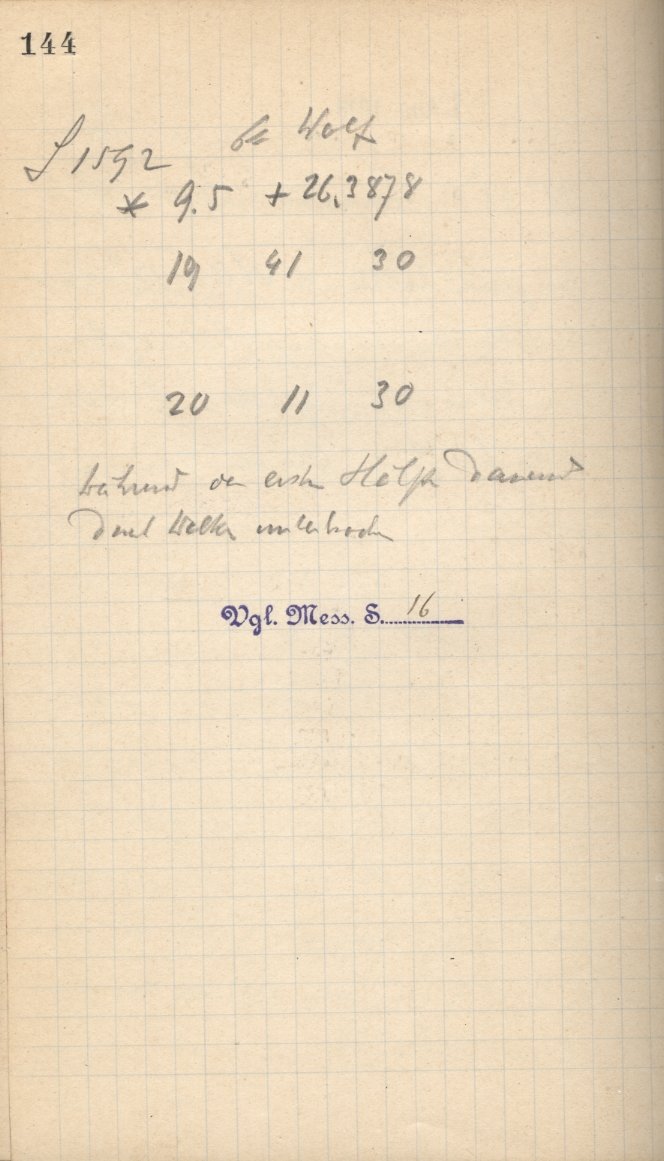 144
1592 Wolf
* 9.5 + 26.3878
19 41 30
20 11 30
während der ersten Hälfte dauernd
durch Wolken unterbrochen
Vgl. Mess. S. 16